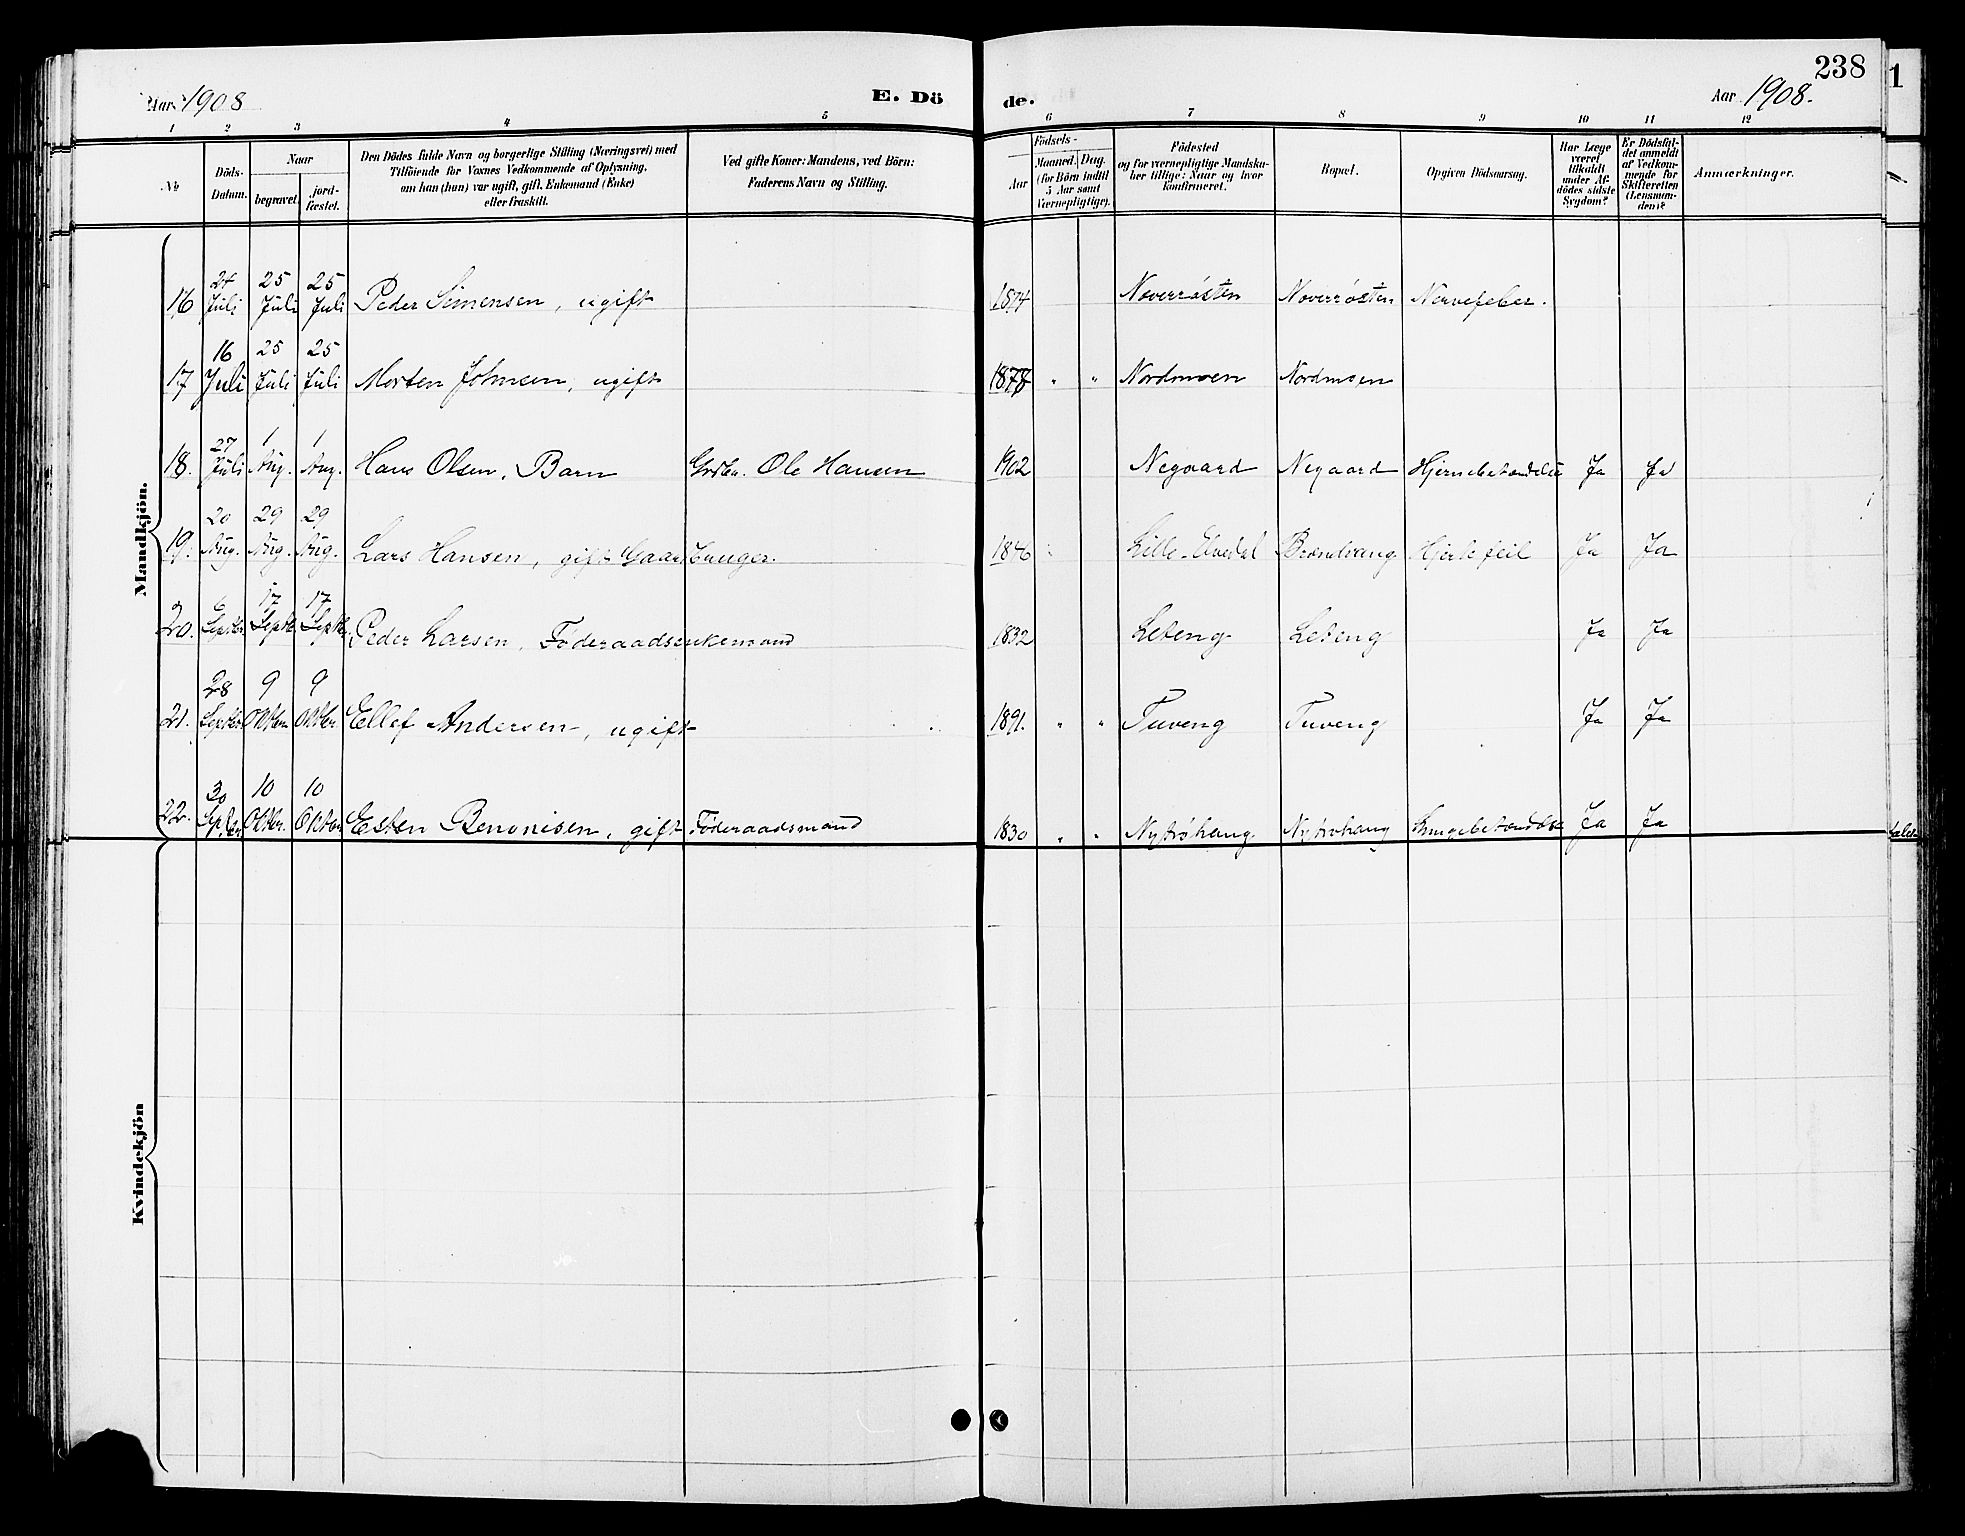 238
Aar 1908 E. Dö de. Aar 1908.
1 2 3 4 5 6 7 8 9 10 11 12
No.
Döds-Datum.
Naar
begravet. jord-fæstet.
Den Dödes fulde Navn og borgerlige Stilling (Næringsvei) med
Tilföiende for Voxnes Vedkommende af Oplysning,
om han (hun) var ugift, gift, Enkemand (Enke)
eller fraskilt.
Ved gifte Koner: Mandens, ved Börn:
Faderens Navn og Stilling.
Födsels-
Aar Maaned. Dag.
(for Börn indtil
5 Aar samt
Værnepligtige).
Födested
og for værnepligtige Mandska-
ber tillige: Naar og hvor
konfirmeret.
Bopæl.
Opgiven Dödsaarsag.
Har Læge
været
tilkaldt
under Af-
dödes sidste
Sygdom?
Er Dödsfal-
det anmeldt
af Vedkom-
mende for
Skifteretten
(Lensman-
den)?
Anmærkninger.
Mandkjön.
16 24 Juli 25 Juli 25 Juli Peder Simensen, ugift 1874 Noverrøsten Noverrøsten Nervefeber.
17 16 Juli 25 Juli 25 Juli Morten Johnsen, ugift 1878 " " Nordmoen Nordmoen
18. 27 Juli 1 Aug. 1 Aug. Hans Olsen, Barn Ole Hansen 1902 Negaard Negaard Hjernebetændelse Ja Ja
19. 20 Aug. 29 Aug. 29 Aug. Lars Hansen, gift Gaardbruger. 1846 Lille-Elvedal Hjertefeil Ja Ja
20. 6 Septbr. 17 Septbr. 17 Septbr. Peder Larsen, Føderaadsenkemand 1832 Ja Ja
21. 28 Septbr. 9 Oktbr. 9 Oktbr. Ellef Andersen, ugift 1891. " " Tuveng Tuveng Ja Ja
22. 30 Septbr. 10 Oktbr. 10 Oktbr. Esten Benonisen, gift Føderaadsmand 1830 " " Nytrøhaug. Nytrøhaug Lungebetændelse Ja Ja
Kvindekjön